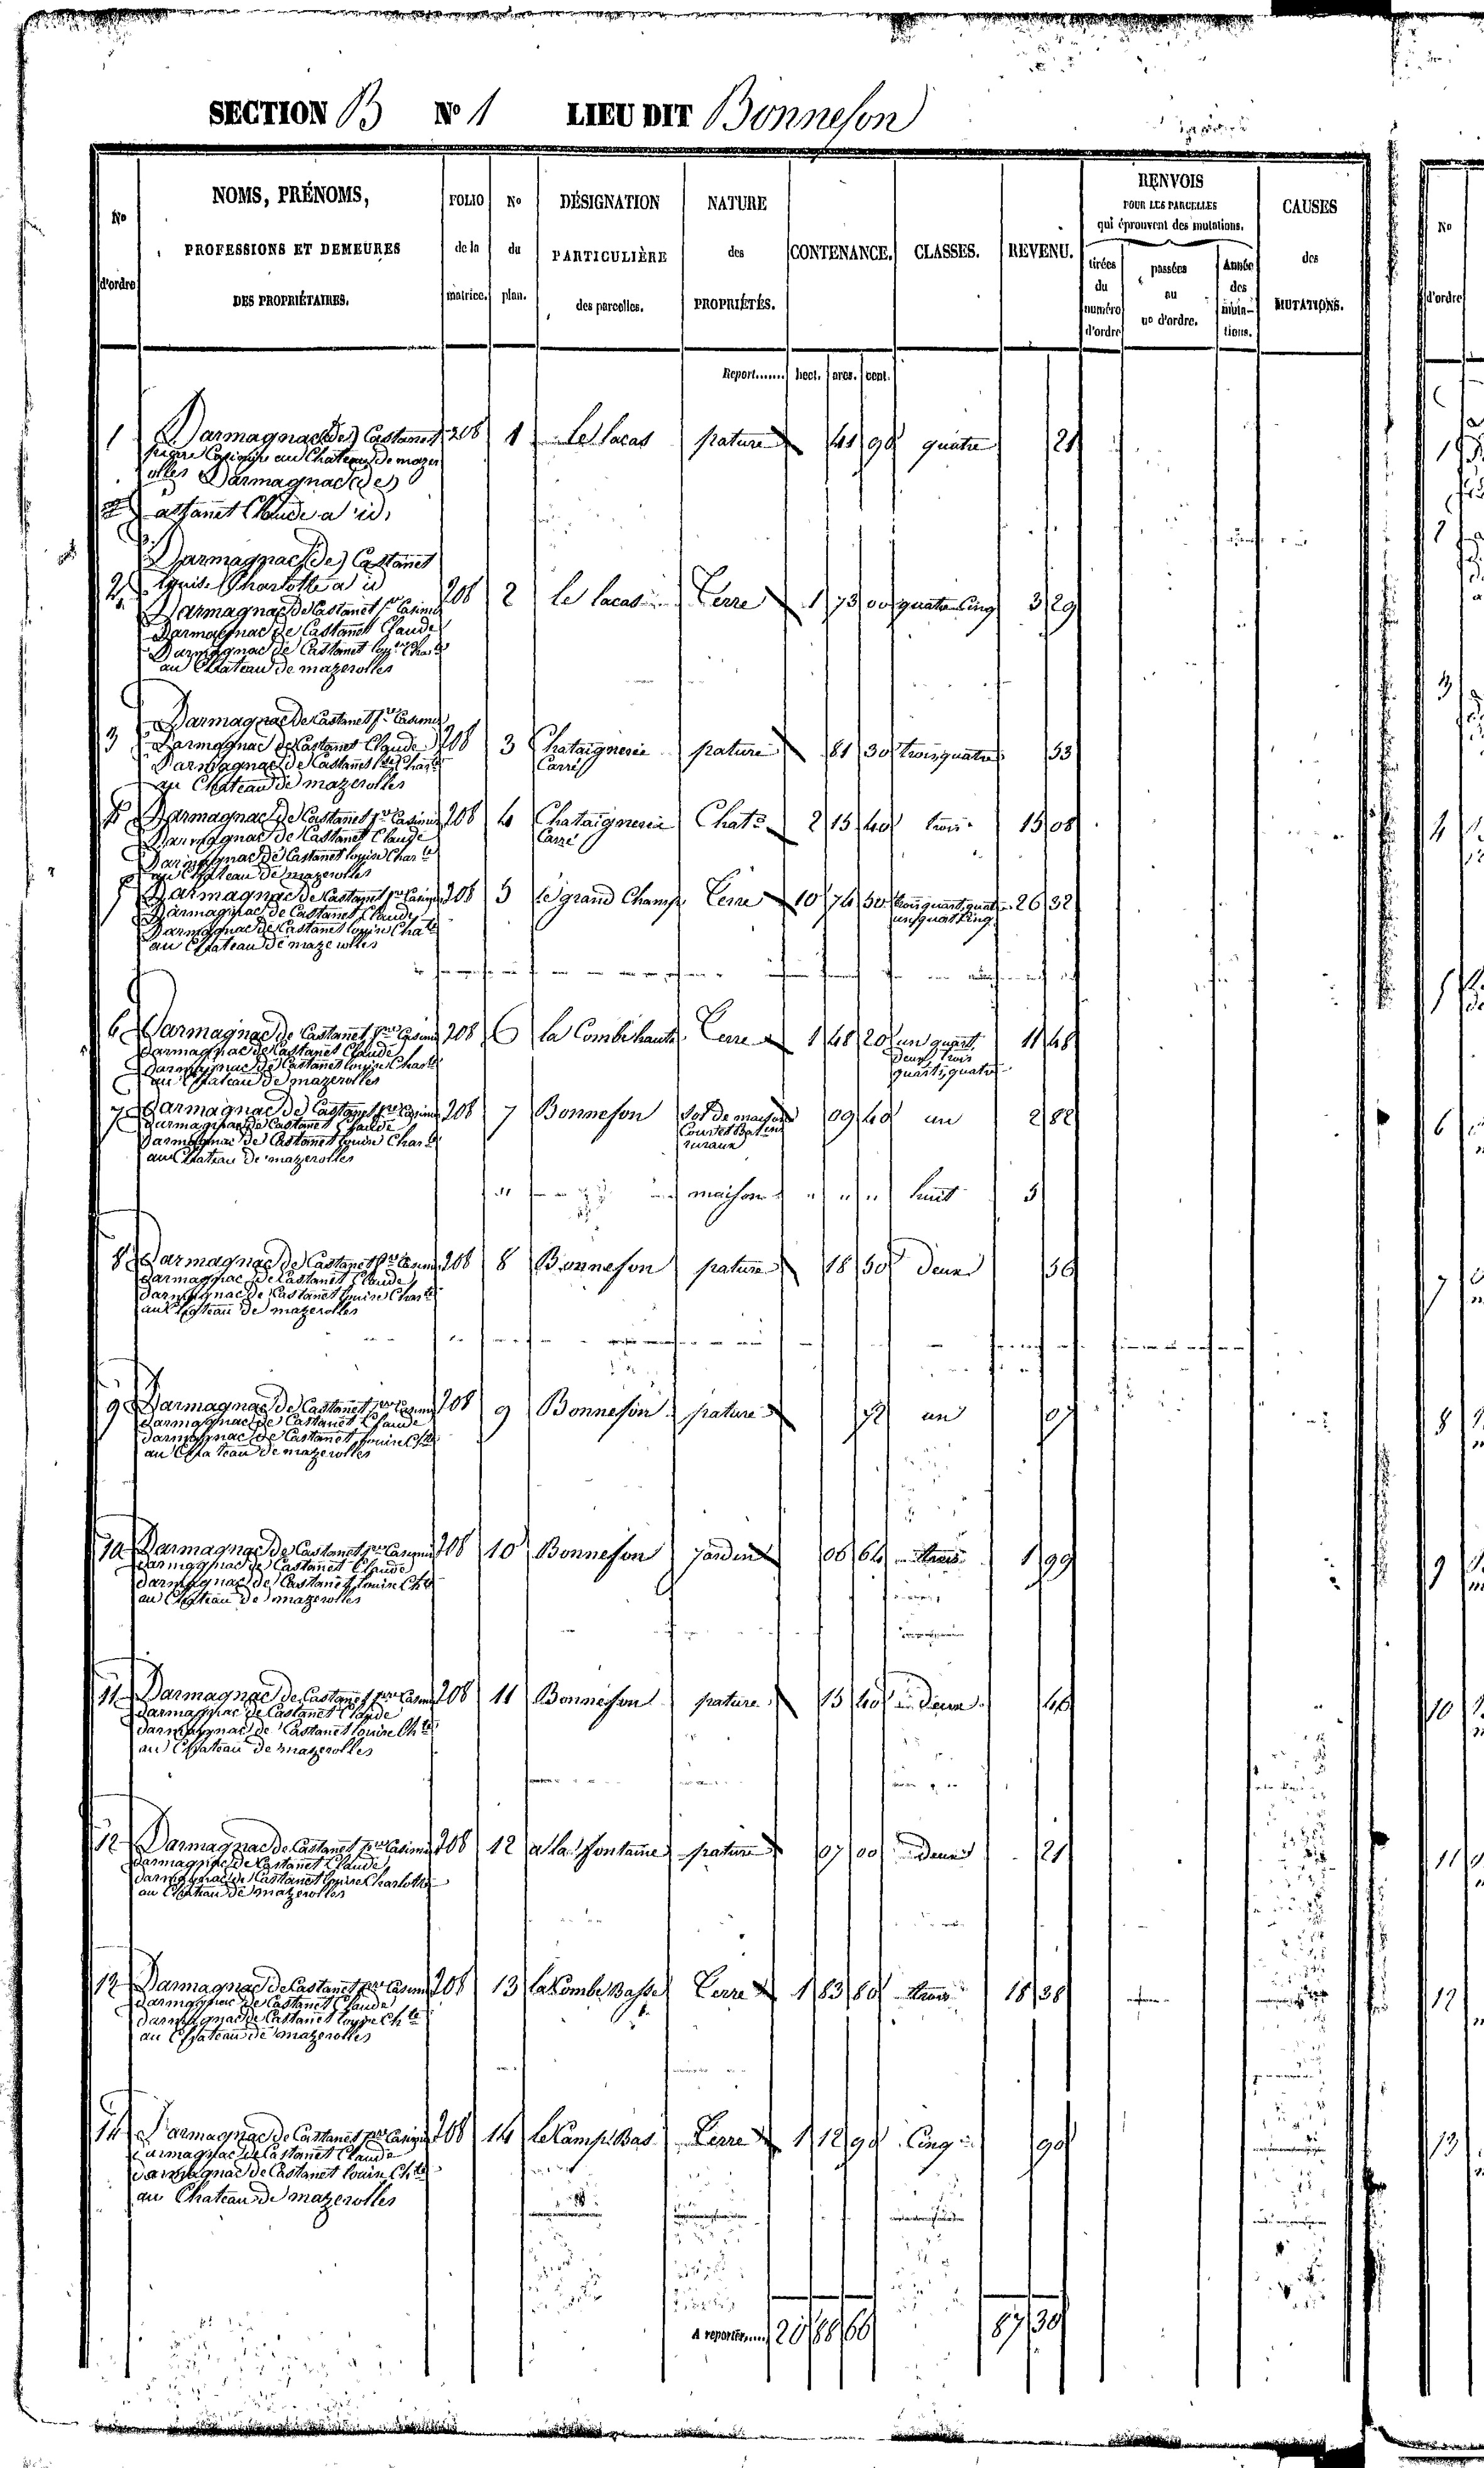 SECTION B N° 1 LIEU DIT Bonneson
N° d'ordre
NOMS, PRÉNOMS, PROFESSIONS ET DEMEURES DES PROPRIÉTAIRES.
FOLIO de la matrice.
N° du plan.
DÉSIGNATION PARTICULIÈRE des parcelles.
NATURE des PROPRIÉTÉS.
CONTENANCE.
CLASSES.
REVENU.
RENVOIS POUR LES PARCELLES qui éprouvent des mutations.
tirées du numéro d'ordre
passées au n° d'ordre.
Année des muta-tions.
CAUSES des MUTATIONS.
Report....... hect. ares. cent.
1 Darmagnac (de) Castanet 208 1 Le lacas pature 41 90 quatre 21
pierre Casimir au Chateau de mazer
olles Darmagnac (de)
Castanet Claude a id.
Darmagnac (de) Castanet
2 louise Charlotte a id 208 2 le lacas Terre 1 73 00 quatre Cinq 3 29
Darmagnac de Castanet pre Casimir
Darmagnac de Castanet Claude
Darmagnac de Castanet louise Charte
au Chateau de mazerolles
3 Darmagnac de Castanet pre Casimir
Darmagnac de Castanet Claude 208 3 Chataigneraie pature 81 30 trois quatre 53
Darmagnac de Castanet lse Charte Carré
au Chateau de mazerolles
4 Darmagnac de Castanet pre Casimir 208 4 Chataigneraie Chate 2 15 40 trois 15 08
Darmagnac de Castanet Claude Carré
Darmagnac de Castanet louise Charte
au Chateau de mazerolles
5 Darmagnac de Castanet pre Casimir 208 5 le grand Champ Terre 10 74 50 26 32
Darmagnac de Castanet Claude
Darmagnac de Castanet louise Chate
au Chateau de mazerolles
6 Darmagnac de Castanet pre Casimir 208 6 la Combe haute Terre 1 48 20 un quart 11 48
Darmagnac de Castanet Claude deux trois
Darmagnac de Castanet louise Charte quarts, quatre
au Chateau de mazerolles
7 Darmagnac de Castanet pre Casimir 208 7 Bonneson Sol de maison 09 40 un 2 82
Darmagnac de Castanet Claude Cour et Batiments
Darmagnac de Castanet louise Charte ruraux
au Chateau de mazerolles
" maison " " " huit 5
8 Darmagnac de Castanet pre Casimir 208 8 Bonneson pature 18 50 Deux 56
Darmagnac de Castanet Claude
Darmagnac de Castanet louise Charte
au Chateau de mazerolles
9 Darmagnac de Castanet pre Casimir 208 9 Bonneson pature 72 un 07
Darmagnac de Castanet Claude
Darmagnac de Castanet louise Chte
au Chateau de mazerolles
10 Darmagnac de Castanet pre Casimir 208 10 Bonneson jardin 06 64 trois 1 99
Darmagnac de Castanet Claude
Darmagnac de Castanet louise Chte
au Chateau de mazerolles
11 Darmagnac de Castanet pre Casimir 208 11 Bonneson pature 15 40 Deux 46
Darmagnac de Castanet Claude
Darmagnac de Castanet louise Chte
au Chateau de mazerolles
12 Darmagnac de Castanet pre Casimir 208 12 a la fontaine pature 07 00 Deux 21
Darmagnac de Castanet Claude
Darmagnac de Castanet louise Charlotte
au Chateau de mazerolles
12 Darmagnac de Castanet pre Casimir 208 13 la Combe Basse Terre 1 83 80 trois 18 38
Darmagnac de Castanet Claude
Darmagnac de Castanet louise Chte
au Chateau de mazerolles
14 Darmagnac de Castanet pre Casimir 208 14 le Camp Bas Terre 1 12 90 Cinq 90
Darmagnac de Castanet Claude
Darmagnac de Castanet louise Chte
au Chateau de mazerolles
A reporter..... 20 88 66 87 30
N° d'ordre
1
2
3
4
5
6
7
8
9
10
11
12
13